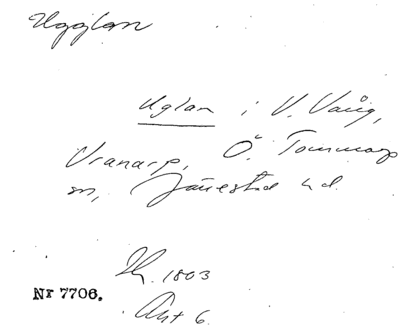 Ugglan
Uglan i V. Vång,
Vranarp, Ö. Tommarp
sn, Järrestad hd.
1803
Akt 6.
Nr 7706.